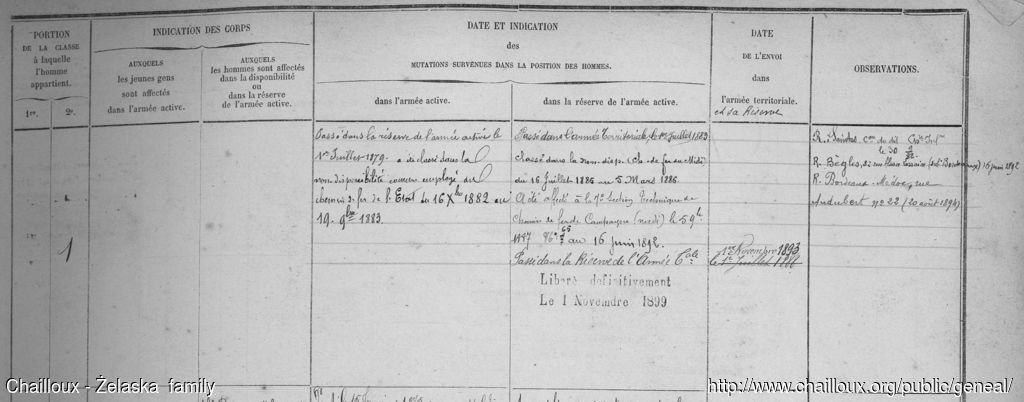 PORTION
DE LA CLASSE
à laquelle
l'homme
appartient.
1re.
2e.
INDICATION DES CORPS
AUXQUELS
les jeunes gens
sont affectés
dans l'armée active.
AUXQUELS
les hommes sont affectés
dans la disponibilité
ou
dans la réserve
de l'armée active.
DATE ET INDICATION
des
MUTATIONS SURVENUES DANS LA POSITION DES HOMMES.
dans l'armée active.
dans la réserve de l'armée active.
DATE
DE L'ENVOI
dans
l'armée territoriale.
et sa Réserve
OBSERVATIONS.
1
Passé dans la réserve de l'armée active le
1er Juillet 1879. a été classé dans la
non disponibilité comme employé du
chemin de fer de l'Etat du 16 Xbre 1882 au
19. 9bre 1883
Passé dans l'armée Territoriale, le 1er Juillet 1883
Classé dans la non. disp. Cie de fer du Midi
du 16 Juillet 1885 au 5 Mars 1886.
A été affecté à la 7e Section Technique de
Chemin de fer de Campagne (midi) le 59t
1887 au 16 juin 1892.
Passé dans la Réserve de l'Armée Cale
Liberé definitivement
Le 1 Novembre 1899
1er Novembre 1893
le 1er Juillet 1888
R. Saintes
le 30
R. Bègles, 16 juin 1892
R. Bordeaux
Audubert no 22 (20 août 1894)
Chailloux - Żelaska family
http://www.chailloux.org/public/geneal/